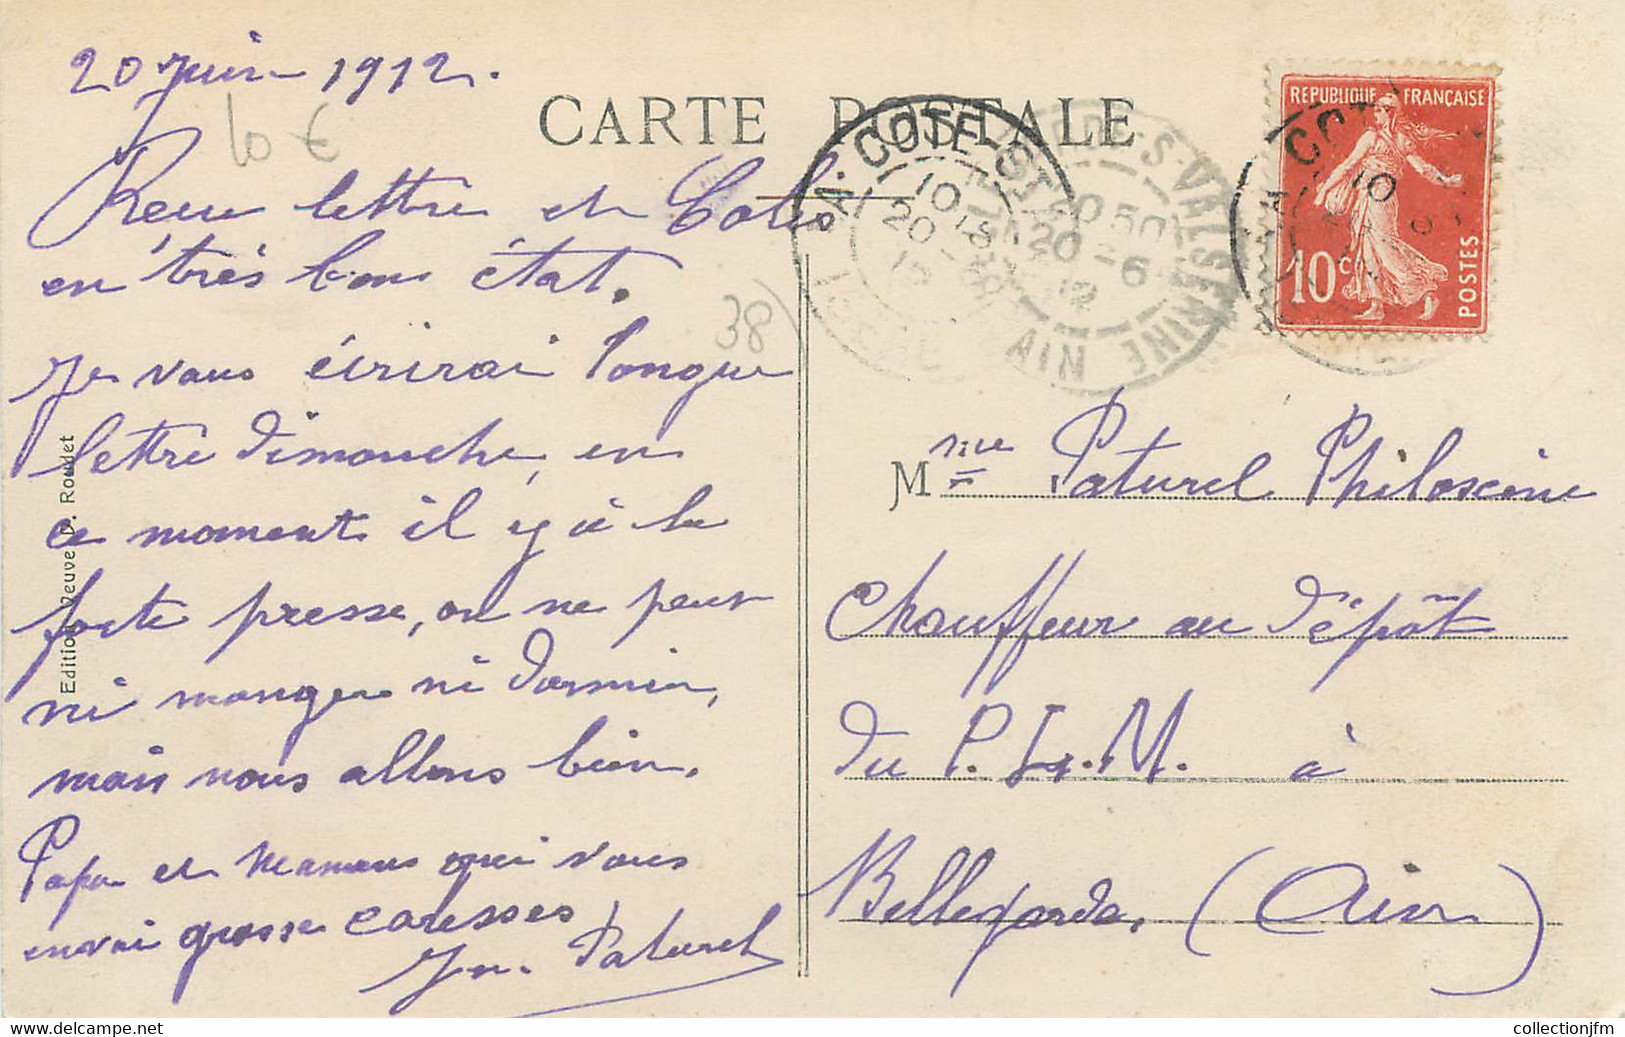 20 Juin 1912.
10 €
CARTE POSTALE
Recu lettre et Colis
en très bon état.
38
Je vous écrirai longue
lettre dimanche, en
ce moment il y à la
forte presse, on ne peut
ni manger ni dormir,
mais nous allons bien.
Papa et Maman qui vous
envoi grosse caresses
Jn. Paturel
Edition Veuve D. Roudet
LA COTE-ST
ISERE
10
20
S-VALSERINE
AIN
20 50
20 -6
12
REPUBLIQUE FRANÇAISE
10c
POSTES
COTE
10
M Paturel Philoscine
Chauffeur au dépôt
du P. L. M. à
Bellegarde, (Ain)
collectionjfm